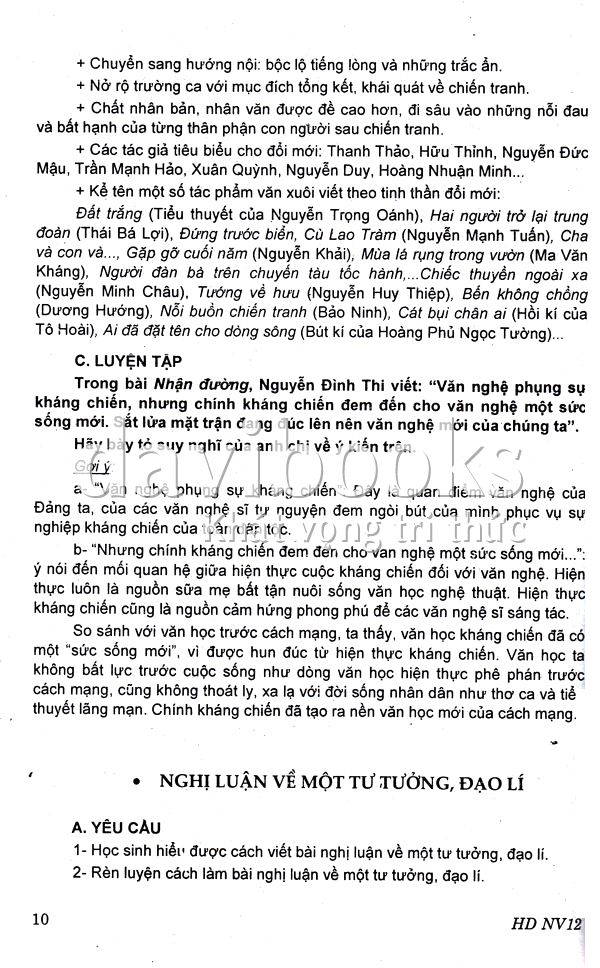 + Chuyển sang hướng nội: bộc lộ tiếng lòng và những trắc ẩn.
+ Nở rộ trường ca với mục đích tổng kết, khái quát về chiến tranh.
+ Chất nhân bản, nhân văn được đề cao hơn, đi sâu vào những nỗi đau
và bất hạnh của từng thân phận con người sau chiến tranh.
+ Các tác giả tiêu biểu cho đổi mới: Thanh Thảo, Hữu Thỉnh, Nguyễn Đức
Mậu, Trần Mạnh Hảo, Xuân Quỳnh, Nguyễn Duy, Hoàng Nhuận Minh...
+ Kể tên một số tác phẩm văn xuôi viết theo tinh thần đổi mới:
Đất trắng (Tiểu thuyết của Nguyễn Trọng Oánh), Hai người trở lại trung
đoàn (Thái Bá Lợi), Đứng trước biển, Cù Lao Tràm (Nguyễn Mạnh Tuấn), Cha
và con và..., Gặp gỡ cuối năm (Nguyễn Khải), Mùa lá rụng trong vườn (Ma Văn
Kháng), Người đàn bà trên chuyến tàu tốc hành,...Chiếc thuyền ngoài xa
(Nguyễn Minh Châu), Tướng về hưu (Nguyễn Huy Thiệp), Bến không chồng
(Dương Hướng), Nỗi buồn chiến tranh (Bảo Ninh), Cát bụi chân ai (Hồi kí của
Tô Hoài), Ai đã đặt tên cho dòng sông (Bút kí của Hoàng Phủ Ngọc Tường)...
C. LUYỆN TẬP
Trong bài Nhận đường, Nguyễn Đình Thi viết: “Văn nghệ phụng sự
kháng chiến, nhưng chính kháng chiến đem đến cho văn nghệ một sức
sống mới. Sắt lửa mặt trận đang đúc lên nên văn nghệ mới của chúng ta”.
Hãy bày tỏ suy nghĩ của anh chị về ý kiến trên.
Gợi ý:
a- “Văn nghệ phụng sự kháng chiến”. Đây là quan điểm văn nghệ của
Đảng ta, của các văn nghệ sĩ tự nguyện đem ngòi bút của mình phục vụ sự
nghiệp kháng chiến của toàn dân tộc.
davibooks
Khát vọng tri thức
b- “Nhưng chính kháng chiến đem đến cho văn nghệ một sức sống mới...”:
ý nói đến mối quan hệ giữa hiện thực cuộc kháng chiến đối với văn nghệ. Hiện
thực luôn là nguồn sữa mẹ bất tận nuôi sống văn học nghệ thuật. Hiện thực
kháng chiến cũng là nguồn cảm hứng phong phú để các văn nghệ sĩ sáng tác.
So sánh với văn học trước cách mạng, ta thấy, văn học kháng chiến đã có
một “sức sống mới”, vì được hun đúc từ hiện thực kháng chiến. Văn học ta
không bất lực trước cuộc sống như dòng văn học hiện thực phê phán trước
cách mạng, cũng không thoát ly, xa lạ với đời sống nhân dân như thơ ca và tiể
thuyết lãng mạn. Chính kháng chiến đã tạo ra nền văn học mới của cách mạng.
• NGHỊ LUẬN VỀ MỘT TƯ TƯỞNG, ĐẠO LÍ
A. YÊU CẦU
1- Học sinh hiểu được cách viết bài nghị luận về một tư tưởng, đạo lí.
2- Rèn luyện cách làm bài nghị luận về một tư tưởng, đạo lí.
10
HD NV12